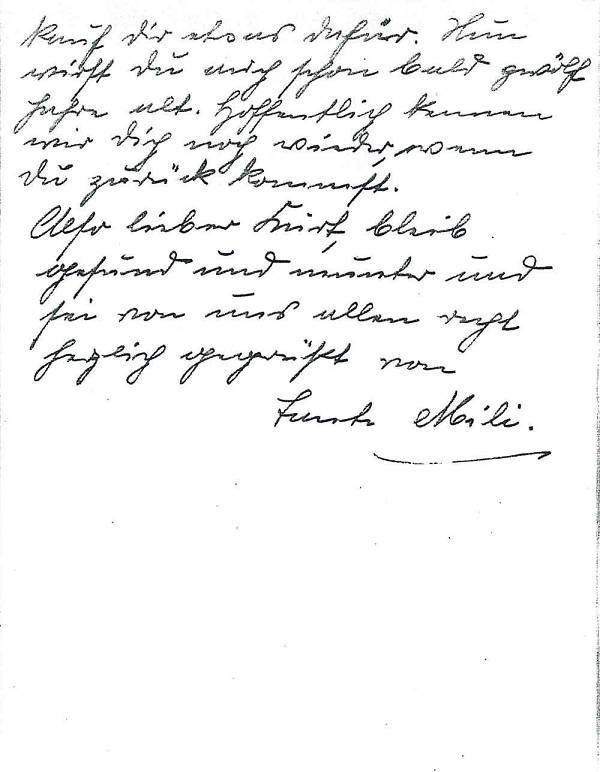 kauf dir etwas dafür. Nun
wirst du auch schon bald zwölf
Jahre alt. Hoffentlich kennen
wir dich noch wieder, wenn
du zurück kommst.
Also lieber Kurt, bleib
gesund und munter und
sei von uns allen recht
herzlich gegrüßt von
Tante Mili.